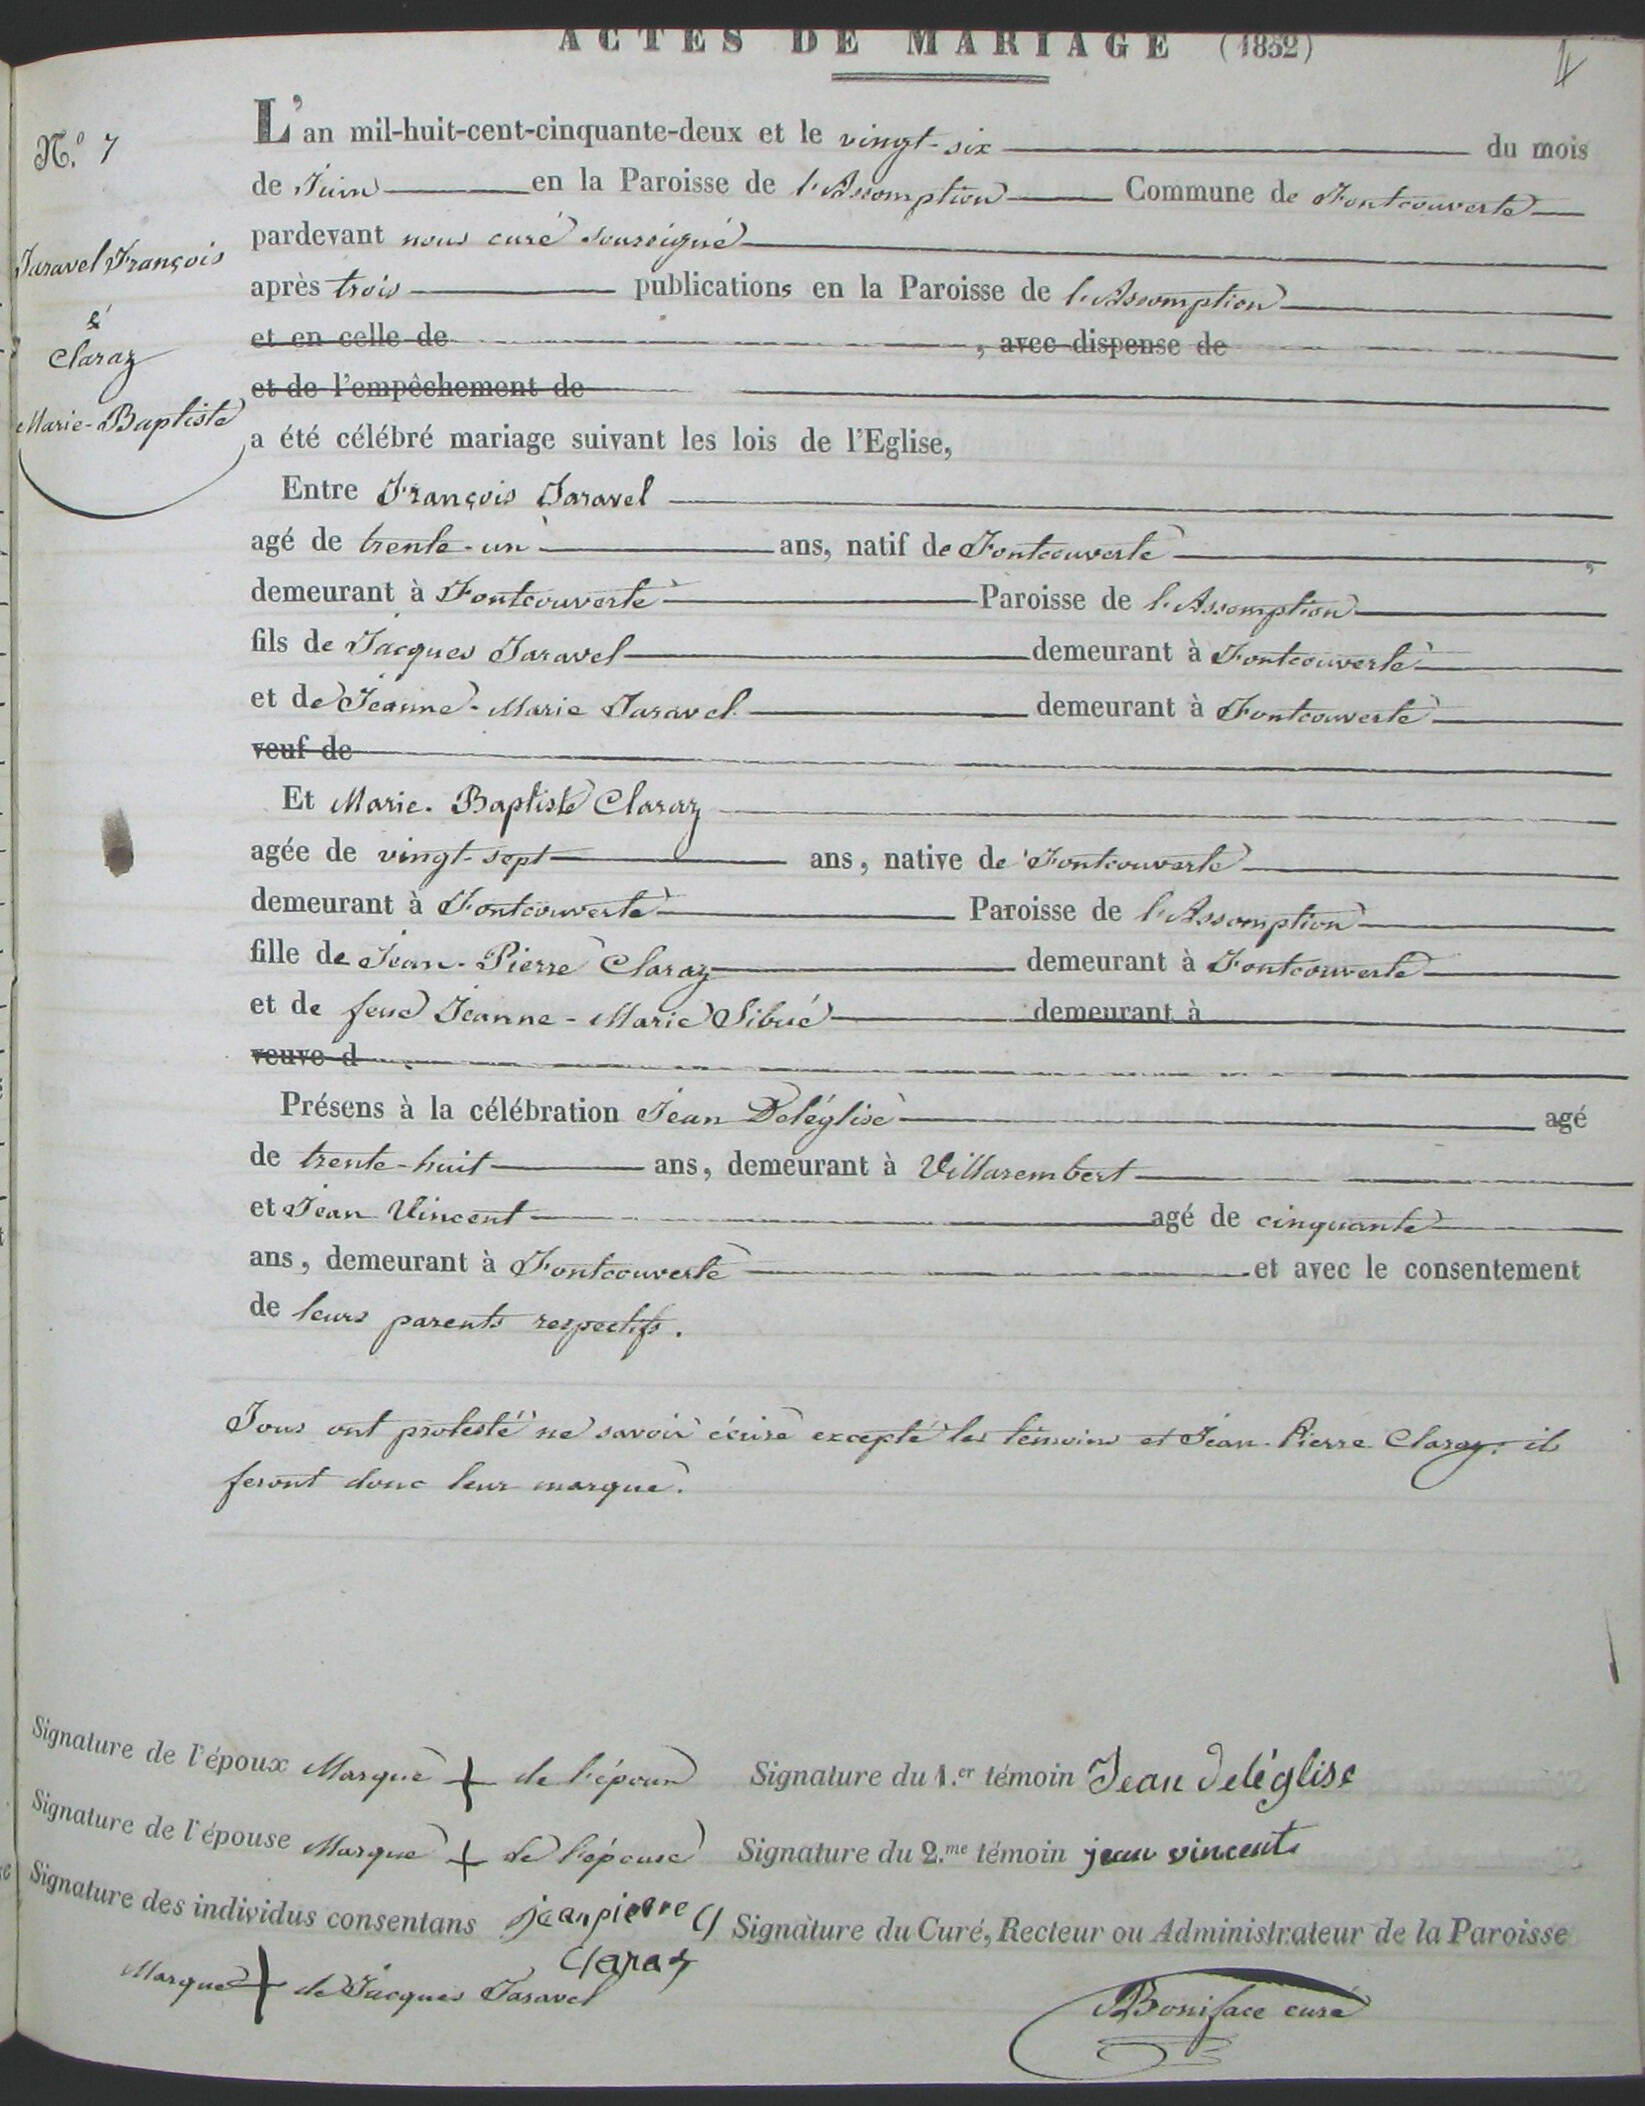 ACTES DE MARIAGE (1852)
4
N.° 7
Taravel François
&
Claraz
Marie-Baptiste
L'an mil-huit-cent-cinquante-deux et le vingt-six du mois
de Juin en la Paroisse de l'Assomption Commune de Fontcouverte
pardevant nous curé soussigné
après trois publications en la Paroisse de l'Assomption
et en celle de , avec dispense de
et de l'empêchement de
a été célébré mariage suivant les lois de l'Eglise,
Entre François Taravel
agé de trente-un ans, natif de Fontcouverte ,
demeurant à Fontcouverte Paroisse de l'Assomption
fils de Jacques Taravel demeurant à Fontcouverte
et de Jeanne-Marie Taravel demeurant à Fontcouverte
veuf de
Et Marie-Baptiste Claraz
agée de vingt-sept ans, native de Fontcouverte
demeurant à Fontcouverte Paroisse de l'Assomption
fille de Jean-Pierre Claraz demeurant à Fontcouverte
et de feue Jeanne-Marie Sibué demeurant à
veuve d
Présens à la célébration Jean Deléglise agé
de trente-huit ans, demeurant à Villarembert
et Jean Vincent agé de cinquante
ans, demeurant à Fontcouverte et avec le consentement
de leurs parents respectifs.
Tous ont protesté ne savoir écrire excepté les témoins et Jean-Pierre Claraz; il
feront donc leur marque.
Signature de l'époux Marque + de l'époux Signature du 1.er témoin Jean deléglise
Signature de l'épouse Marque + de l'épouse Signature du 2.me témoin jean vincent
Signature des individus consentans jeanpierre cl Signature du Curé, Recteur ou Administrateur de la Paroisse
claraz
Marque + de Jacques Taravel
Boniface curé